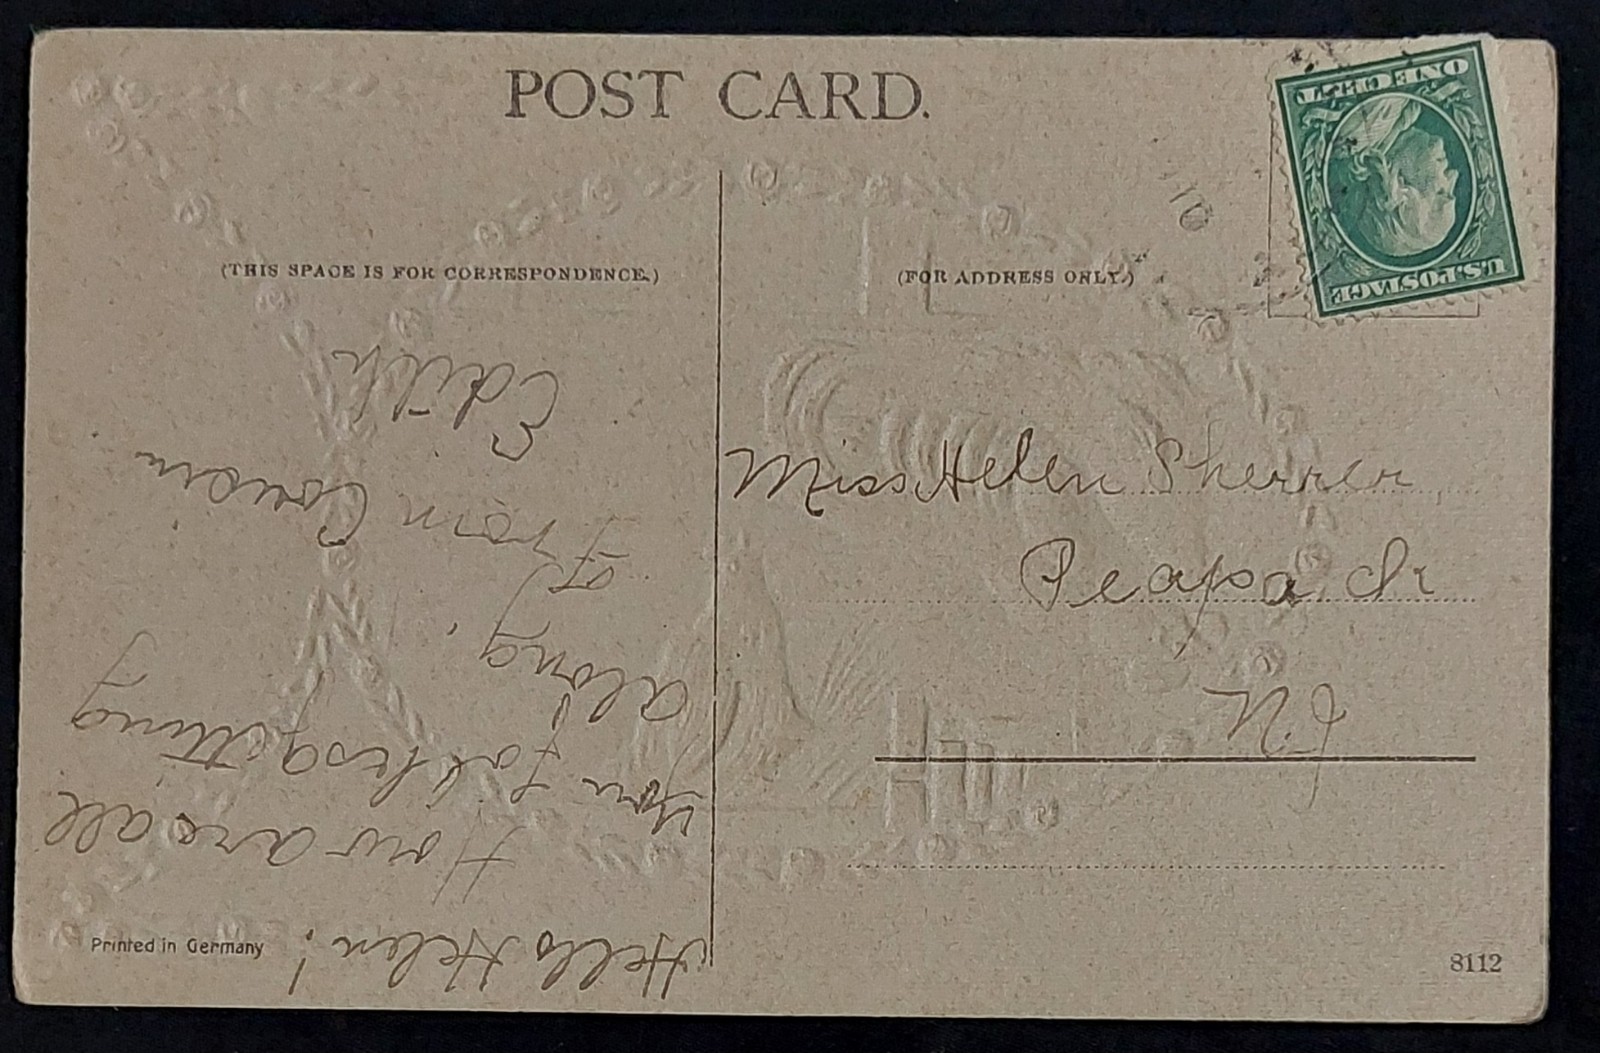 POST CARD.
(THIS SPACE IS FOR CORRESPONDENCE.)
(FOR ADDRESS ONLY.)
U.S. POSTAGE
ONE CENT
10
Hello Helen!
How are all
you folkes getting
along.
From Cousin
Edith
Miss Helen Sherrer
N.J
Printed in Germany
8112